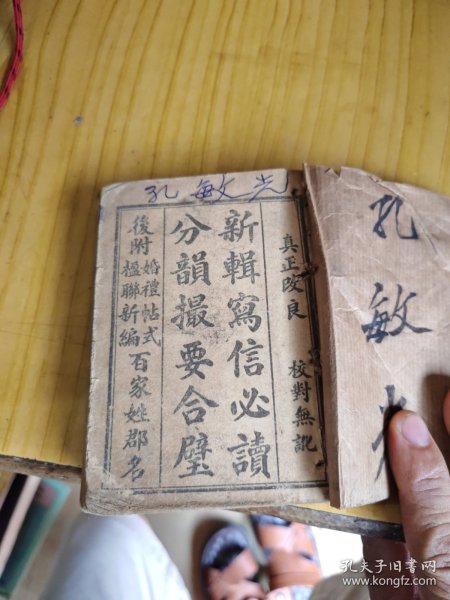 孔敏光
真正改良 校對無訛
新輯寫信必讀
分韻撮要合璧
後附婚禮帖式楹聯新編百家姓郡名
孔敏光
孔夫子旧书网
www.kongfz.com